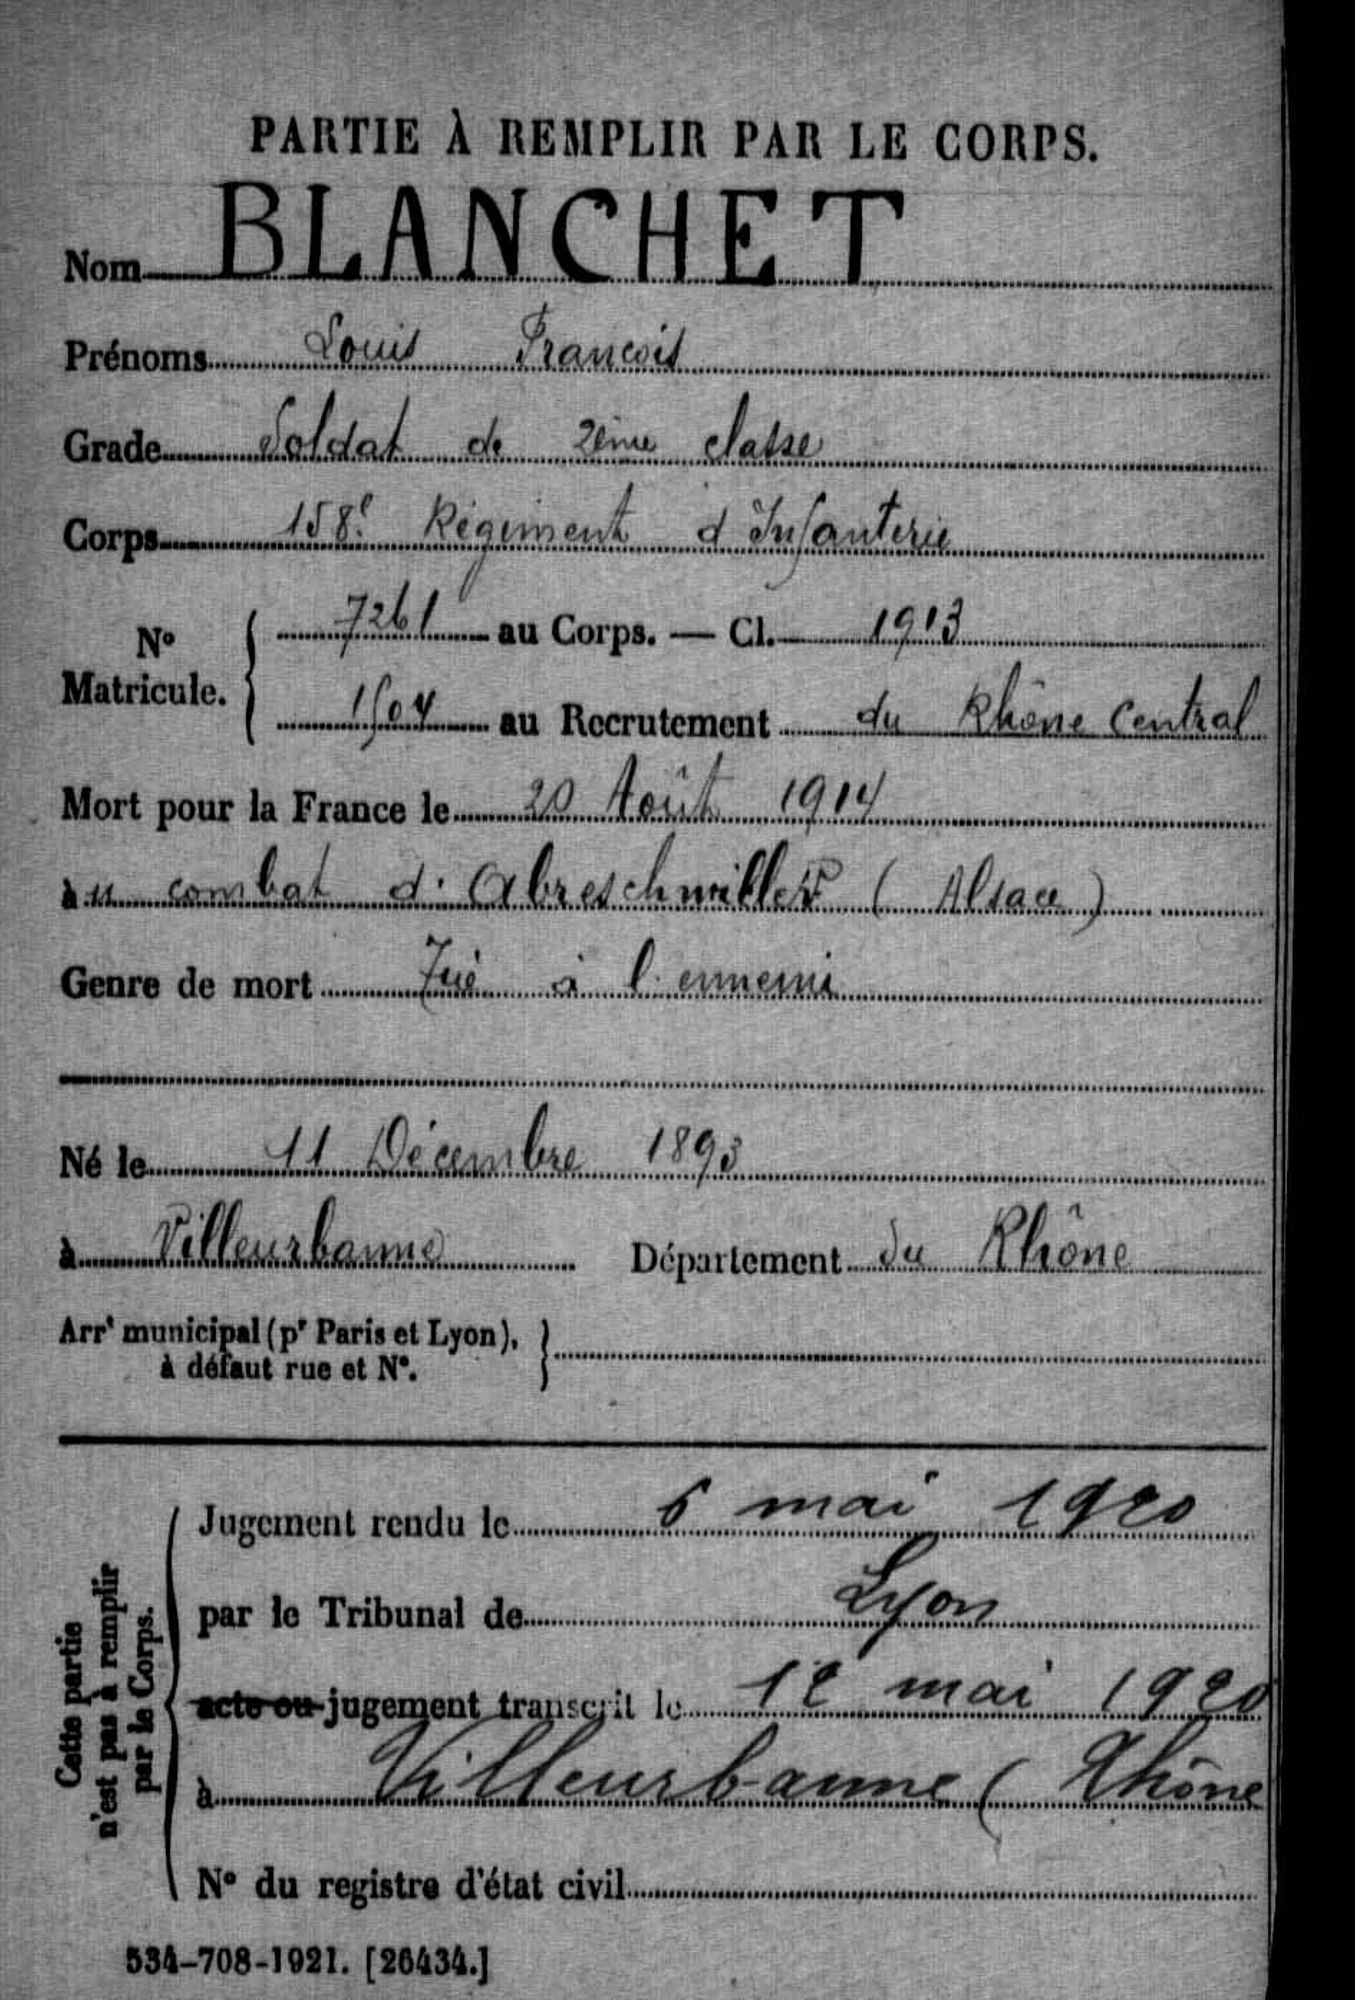 PARTIE À REMPLIR PAR LE CORPS.
Nom BLANCHET
Prénoms Louis Francois
Grade Soldat de 2ème classe
Corps 158e Régiment d'Infanterie
N° Matricule. { 7261 au Corps. — Cl. 1913
1504 au Recrutement du Rhône Central
Mort pour la France le 20 Août 1914
au combat d'Abreschwiller (Alsace)
Genre de mort Tué à l'ennemi
Né le 11 Décembre 1893
à Villeurbanne Département du Rhône
Arrt municipal (pr Paris et Lyon), }
à défaut rue et N°.
Cette partie
n'est pas à remplir
par le Corps.
Jugement rendu le 6 mai 1920
par le Tribunal de Lyon
acte ou jugement transcrit le 12 mai 1920
à Villeurbanne (Rhône
N° du registre d'état civil
534-708-1921. [26434.]